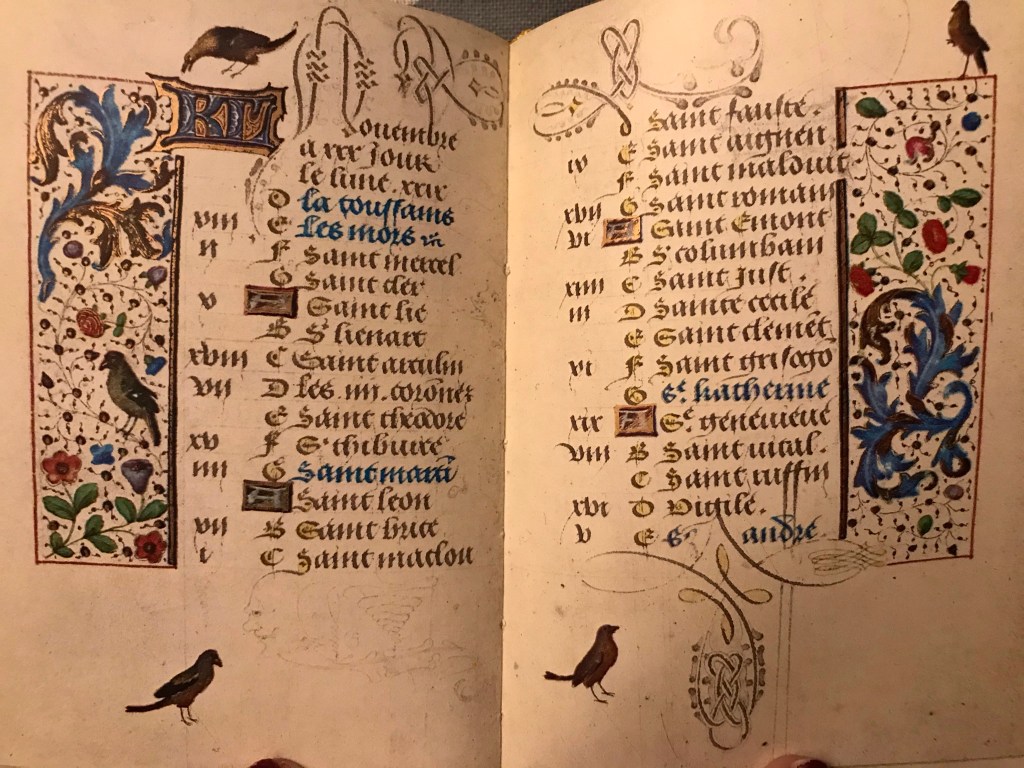 KL
Nouembre
a xxx Jour
le lune. xxix
D la toussains
viii E Les mors
ii F Saint mercel
G Saint cler
v A Saint lie
B St lienart
xviii C Saint arculin
vii D Les. iiii. coronez
E Saint theodore
xv F St thibuire
iiii G Saint marti
A Saint leon
vii B Saint brice
i C Saint maclou
Saint fauste.
ix E Saint aignen
F Saint malouit
xvii G Saint romain
vi A Saint Emont
B S. columbain
xiiii C Saint Just.
iii D Sainte cecile
E Saint clemēt
xi F Saint grisogo
G Se. katherine
xix A Se. geneuieue
viii B Saint vital.
C Saint ruffin
xvi D Vigile.
v E S. andre